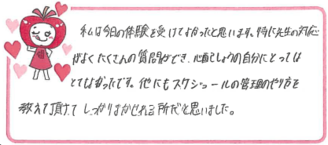 私は今日の体験を受けてすごくよかったと思います。特に先生の対応
がよくたくさんの質問ができ、心配しょうの自分にとっては
とてもよかったです。他にもスケジュールの管理のやり方を
教えて頂けて しっかりまかせれる所だと思いました。